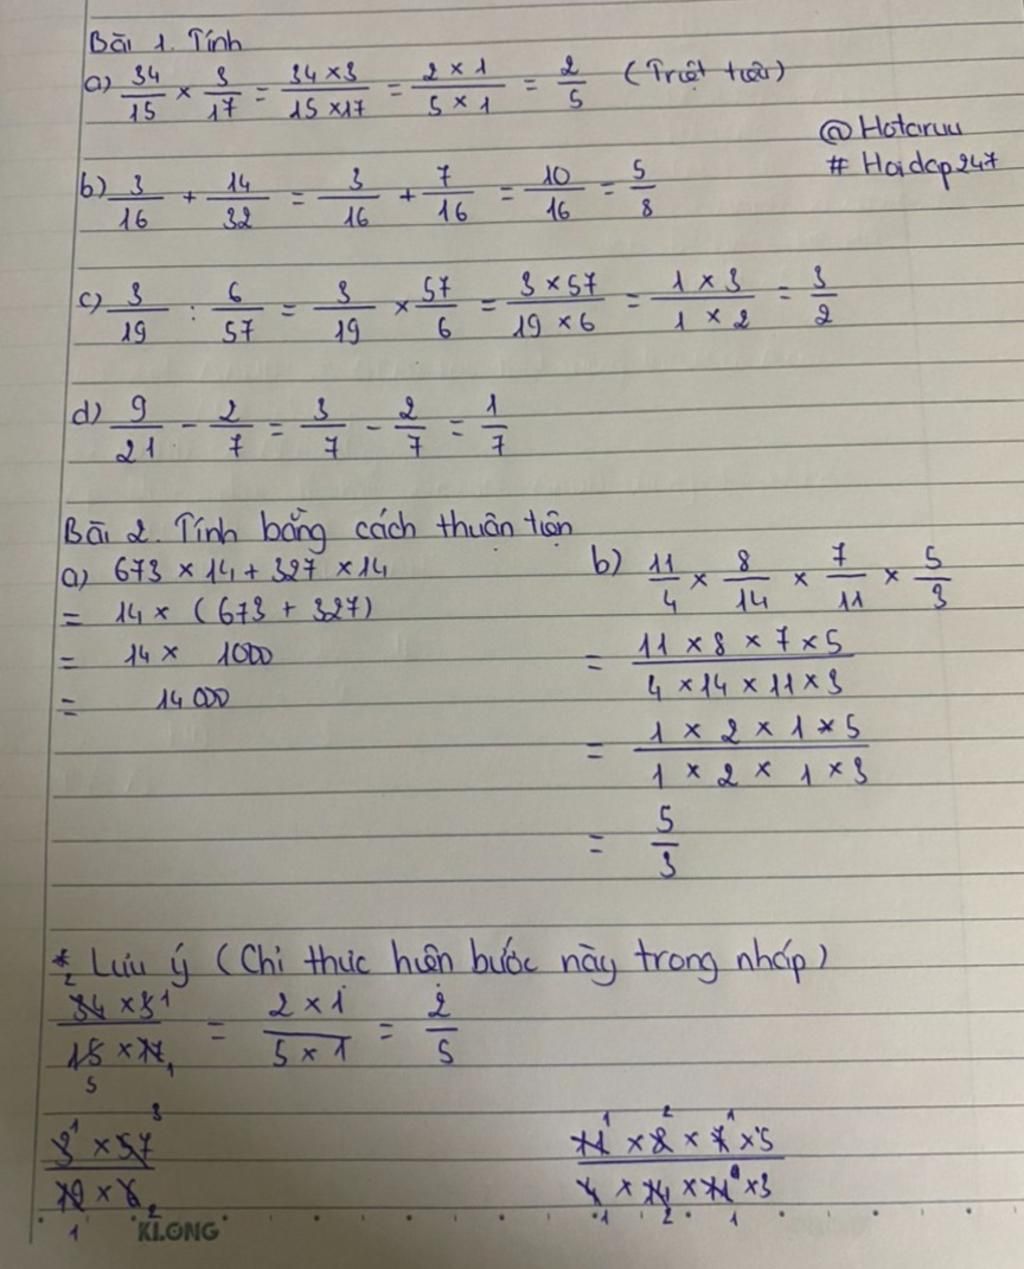 Bài 1. Tính
a) 34/15 × 3/17 = 34 × 3 / 15 × 17 = 2 × 1 / 5 × 1 = 2/5 (Triệt tiêu)
@Hotaruu
# Hoidap247
b) 3/16 + 14/32 = 3/16 + 7/16 = 10/16 = 5/8
c) 3/19 : 6/57 = 3/19 × 57/6 = 3 × 57 / 19 × 6 = 1 × 3 / 1 × 2 = 3/2
d) 9/21 - 2/7 = 3/7 - 2/7 = 1/7
Bài 2. Tính bằng cách thuận tiện
a) 673 × 14 + 327 × 14
= 14 × (673 + 327)
= 14 × 1000
= 14 000
b) 11/4 × 8/14 × 7/11 × 5/3
= 11 × 8 × 7 × 5 / 4 × 14 × 11 × 3
= 1 × 2 × 1 × 5 / 1 × 2 × 1 × 3
= 5/3
* Lưu ý (Chỉ thực hiện bước này trong nháp)
2 1
34 × 3 / 15 × 17 = 2 × 1 / 5 × 1 = 2/5
5 1
1 3
3 × 57 / 19 × 6
1 2
1 2 1
11 × 8 × 7 × 5 / 4 × 14 × 11 × 3
1 2 1
KLONG